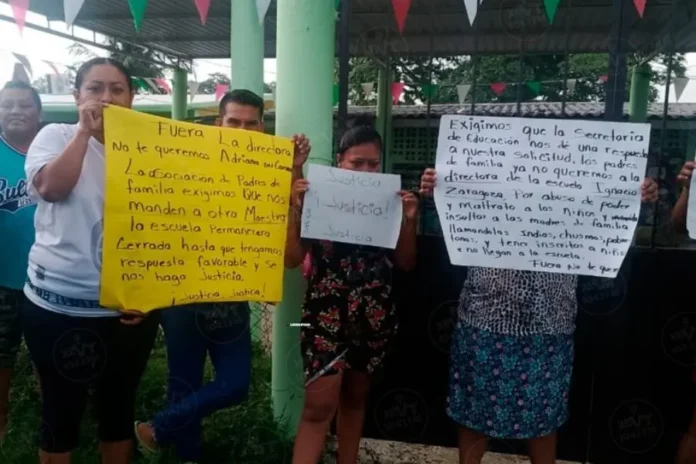 Fuera La directora
No te queremos Adriana
La Asociación de Padres de
familia exigimos Que nos
manden a otra Maestra
la escuela Permanecera
Cerrado hasta que tengamos
respuesta favorable y se
nos haga Justicia.
¡Justicia Justicia!
Justicia
¡Justicia!
Justicia
Exigimos que la Secretaria
de Educación nos de una respuesta
a nuestra solicitud. los padres
de familia ya no queremos a la
directora de la escuela Ignacio
Zaragoza. Por abuso de poder
y maltrato a los niños y
insultar a las madres de familia
llamandolas Indias, chusmas, pobre
tonas, y tener inscritos a niños
q no llegan a la escuela.
Fuera No te que